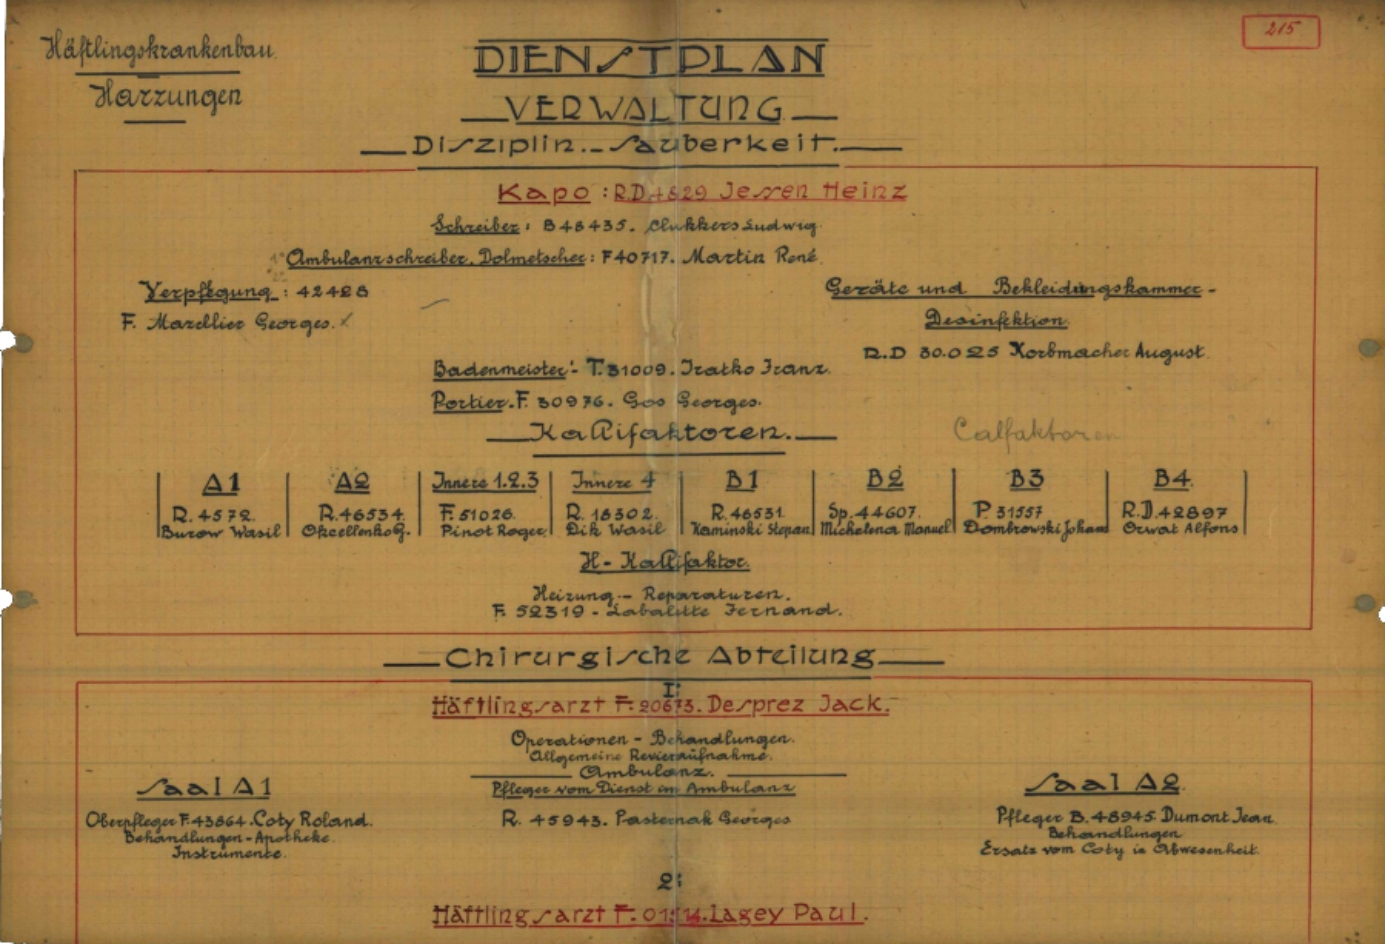 Häftlingskrankenbau
Harzungen
215
DIENSTPLAN
VERWALTUNG
Disziplin.-Sauberkeit.
Kapo: R.D. 4829 Jessen Heinz
Schreiber: B 48435. Clukkers Ludwig
Ambulanzschreiber, Dolmetscher: F 40717. Martin René
Verpflegung: 42428
F. Marellier Georges.
Geräte und Bekleidungskammer-
Desinfektion.
R.D 30.025 Korbmacher August.
Badenmeister: T. 31009. Franz.
Portier. F. 30976. Gos Georges.
Kallifaktoren.
Calfaktoren
A1 A2 Innere 1.2.3 Innere 4 B1 B2 B3 B4.
R. 4572. R. 46534. F. 51026. R. 18302. R. 46531. Sp. 44607. P. 31557 R.D. 42897
Burow Wasil G. Pinot Roger. Dik Wasil Kaminski Stepan Michelena Manuel Dombrowski Johann Orwat Alfons
H-Kallifaktor.
Heizung - Reparaturen.
F. 52319 - Labalitte Fernand.
Chirurgische Abteilung
I:
Häftlingsarzt F. 20673. Desprez Jack.
Operationen - Behandlungen.
Allgemeine Revieraufnahme.
Ambulanz.
Pfleger vom Dienst im Ambulanz
R. 45943. Pasternak Georges
Saal A1
Oberpfleger F. 43864. Coty Roland.
Behandlungen - Apotheke.
Instrumente.
Saal A2
Pfleger B. 48945. Dumont Jean.
Behandlungen
Ersatz vom Coty in Abwesenheit.
2:
Häftlingsarzt F. Lagey Paul.